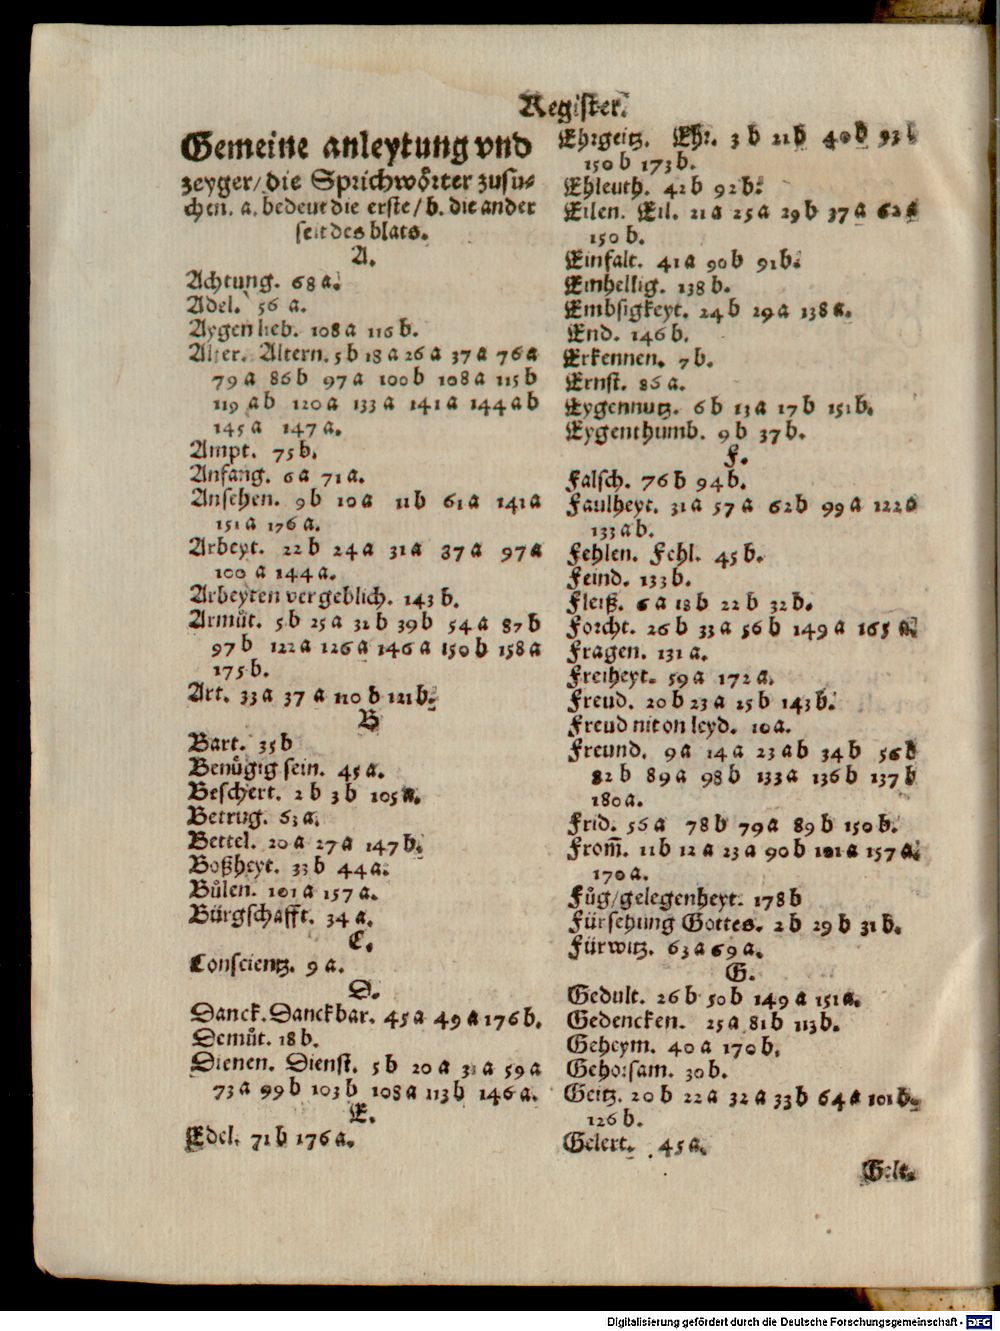 Register.
Gemeine anleytung vnd
zeyger/die Sprichwörter zusu-
chen. a. bedeut die erste/b. die ander
seit des blats.
A.
Achtung. 68 a.
Adel. 56 a.
Aygen lieb. 108 a 116 b.
Alter. Altern. 5 b 18 a 26 a 37 a 76 a
79 a 86 b 97 a 100 b 108 a 115 b
119 ab 120 a 133 a 141 a 144 a b
145 a 147 a.
Ampt. 75 b.
Anfang. 6 a 71 a.
Ansehen. 9 b 10 a 11 b 61 a 141 a
151 a 176 a.
Arbeyt. 22 b 24 a 31 a 37 a 97 a
100 a 144 a.
Arbeyten vergeblich. 143 b.
Armůt. 5 b 25 a 32 b 39 b 54 a 87 b
97 b 122 a 126 a 146 a 150 b 158 a
175 b.
Art. 33 a 37 a 110 b 121 b.
B
Bart. 35 b
Benůgig sein. 45 a.
Beschert. 2 b 3 b 105 a.
Betrug. 63 a.
Bettel. 20 a 27 a 147 b.
Boßheyt. 33 b 44 a.
Bůlen. 101 a 157 a.
Bürgschafft. 34 a.
C.
Conscientz. 9 a.
D.
Danck. Danckbar. 45 a 49 a 176 b.
Demůt. 18 b.
Dienen. Dienst. 5 b 20 a 31 a 59 a
73 a 99 b 103 b 108 a 113 b 146 a.
E.
Edel. 71 b 176 a.
Ehrgeitz. Ehr. 3 b 21 b 40 b 93 b
150 b 173 b.
Ehleuth. 42 b 92 b.
Eilen. Eil. 21 a 25 a 29 b 37 a 62 a
150 b.
Einfalt. 41 a 90 b 91 b.
Einhellig. 138 b.
Embsigkeyt. 24 b 29 a 138 a.
End. 146 b.
Erkennen. 7 b.
Ernst. 86 a.
Eygennutz. 6 b 13 a 17 b 151 b.
Eygenthumb. 9 b 37 b.
F.
Falsch. 76 b 94 b.
Faulheyt. 31 a 57 a 62 b 99 a 122 a
133 a b.
Fehlen. Fehl. 45 b.
Feind. 133 b.
Fleiß. 6 a 18 b 22 b 32 b.
Forcht. 26 b 33 a 56 b 149 a 165 a.
Fragen. 131 a.
Freiheyt. 59 a 172 a.
Freud. 20 b 23 a 25 b 143 b.
Freud nit on leyd. 10 a.
Freund. 9 a 14 a 23 a b 34 b 56 b
82 b 89 a 98 b 133 a 136 b 137 b
180 a.
Frid. 56 a 78 b 79 a 89 b 150 b.
From̃. 11 b 12 a 23 a 90 b 101 a 157 a.
170 a.
Fůg/gelegenheyt. 178 b
Fürsehung Gottes. 2 b 29 b 31 b.
Fürwitz. 63 a 69 a.
G.
Gedult. 26 b 50 b 149 a 151 a.
Gedencken. 25 a 81 b 113 b.
Geheym. 40 a 170 b.
Gehorsam. 30 b.
Geitz. 20 b 22 a 32 a 33 b 64 a 101 b.
126 b.
Gelert. 45 a.
Gelt.
Digitalisierung gefördert durch die Deutsche Forschungsgemeinschaft - DFG